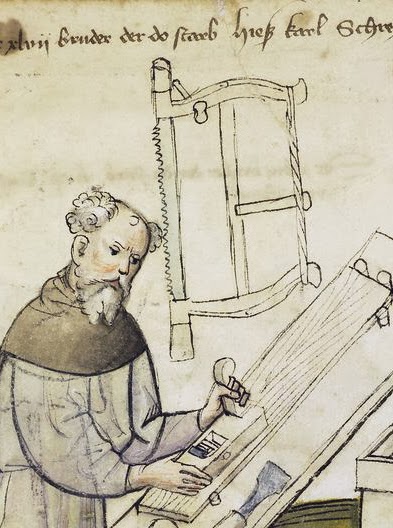 xlvii bruder der do starb hieß karl Schre